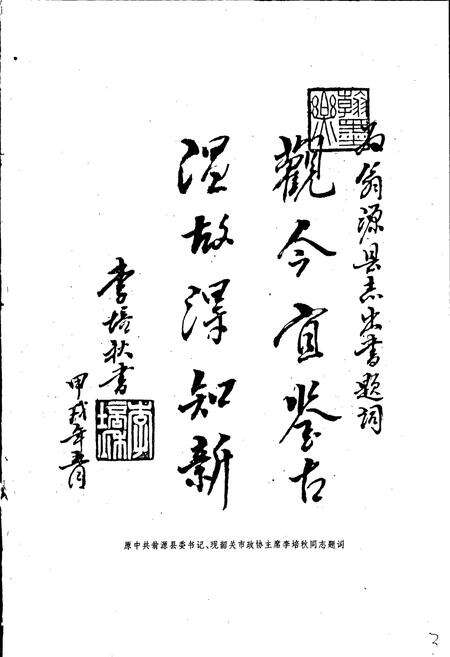 为翁源县志出书题词
觀今宜鉴古
温故得知新
李培秋书
甲戌年青月
翰墨樂
原中共翁源县委书记、现韶关市政协主席李培秋同志题词